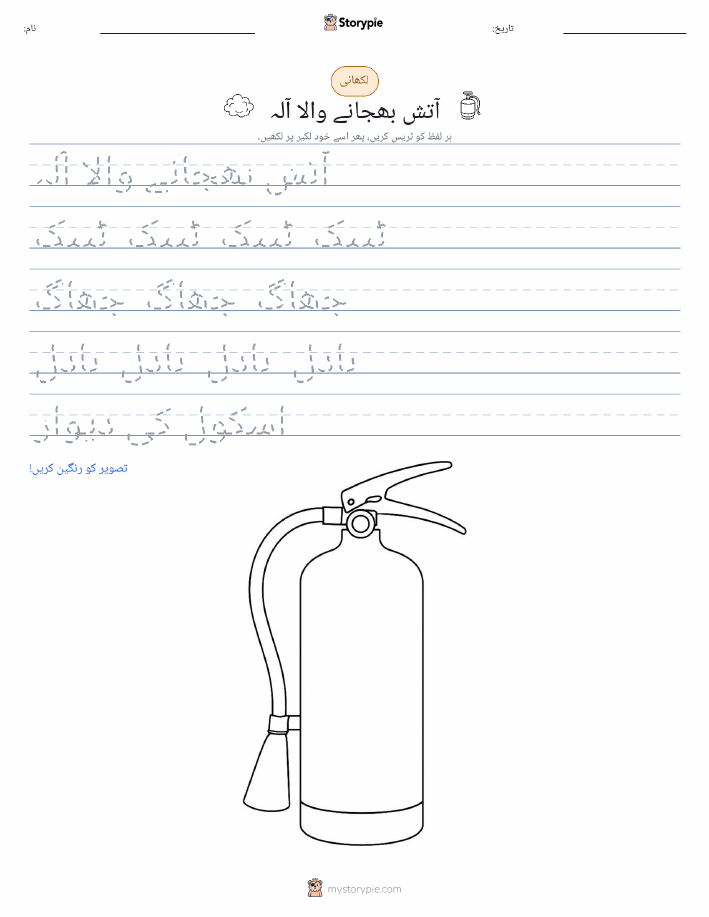 Storypie
نام:
تاریخ:
لکھائی
آتش بھجانے والا آلہ
ہر لفظ کو ٹریس کریں، پھر اسے خود لکیر پر لکھیں۔
آتش بھجانے والا آلہ
ٹینک ٹینک ٹینک ٹینک
جھاگ جھاگ جھاگ
نازل نازل نازل نازل
اسکول کی دیوار
تصویر کو رنگین کریں!
mystorypie.com